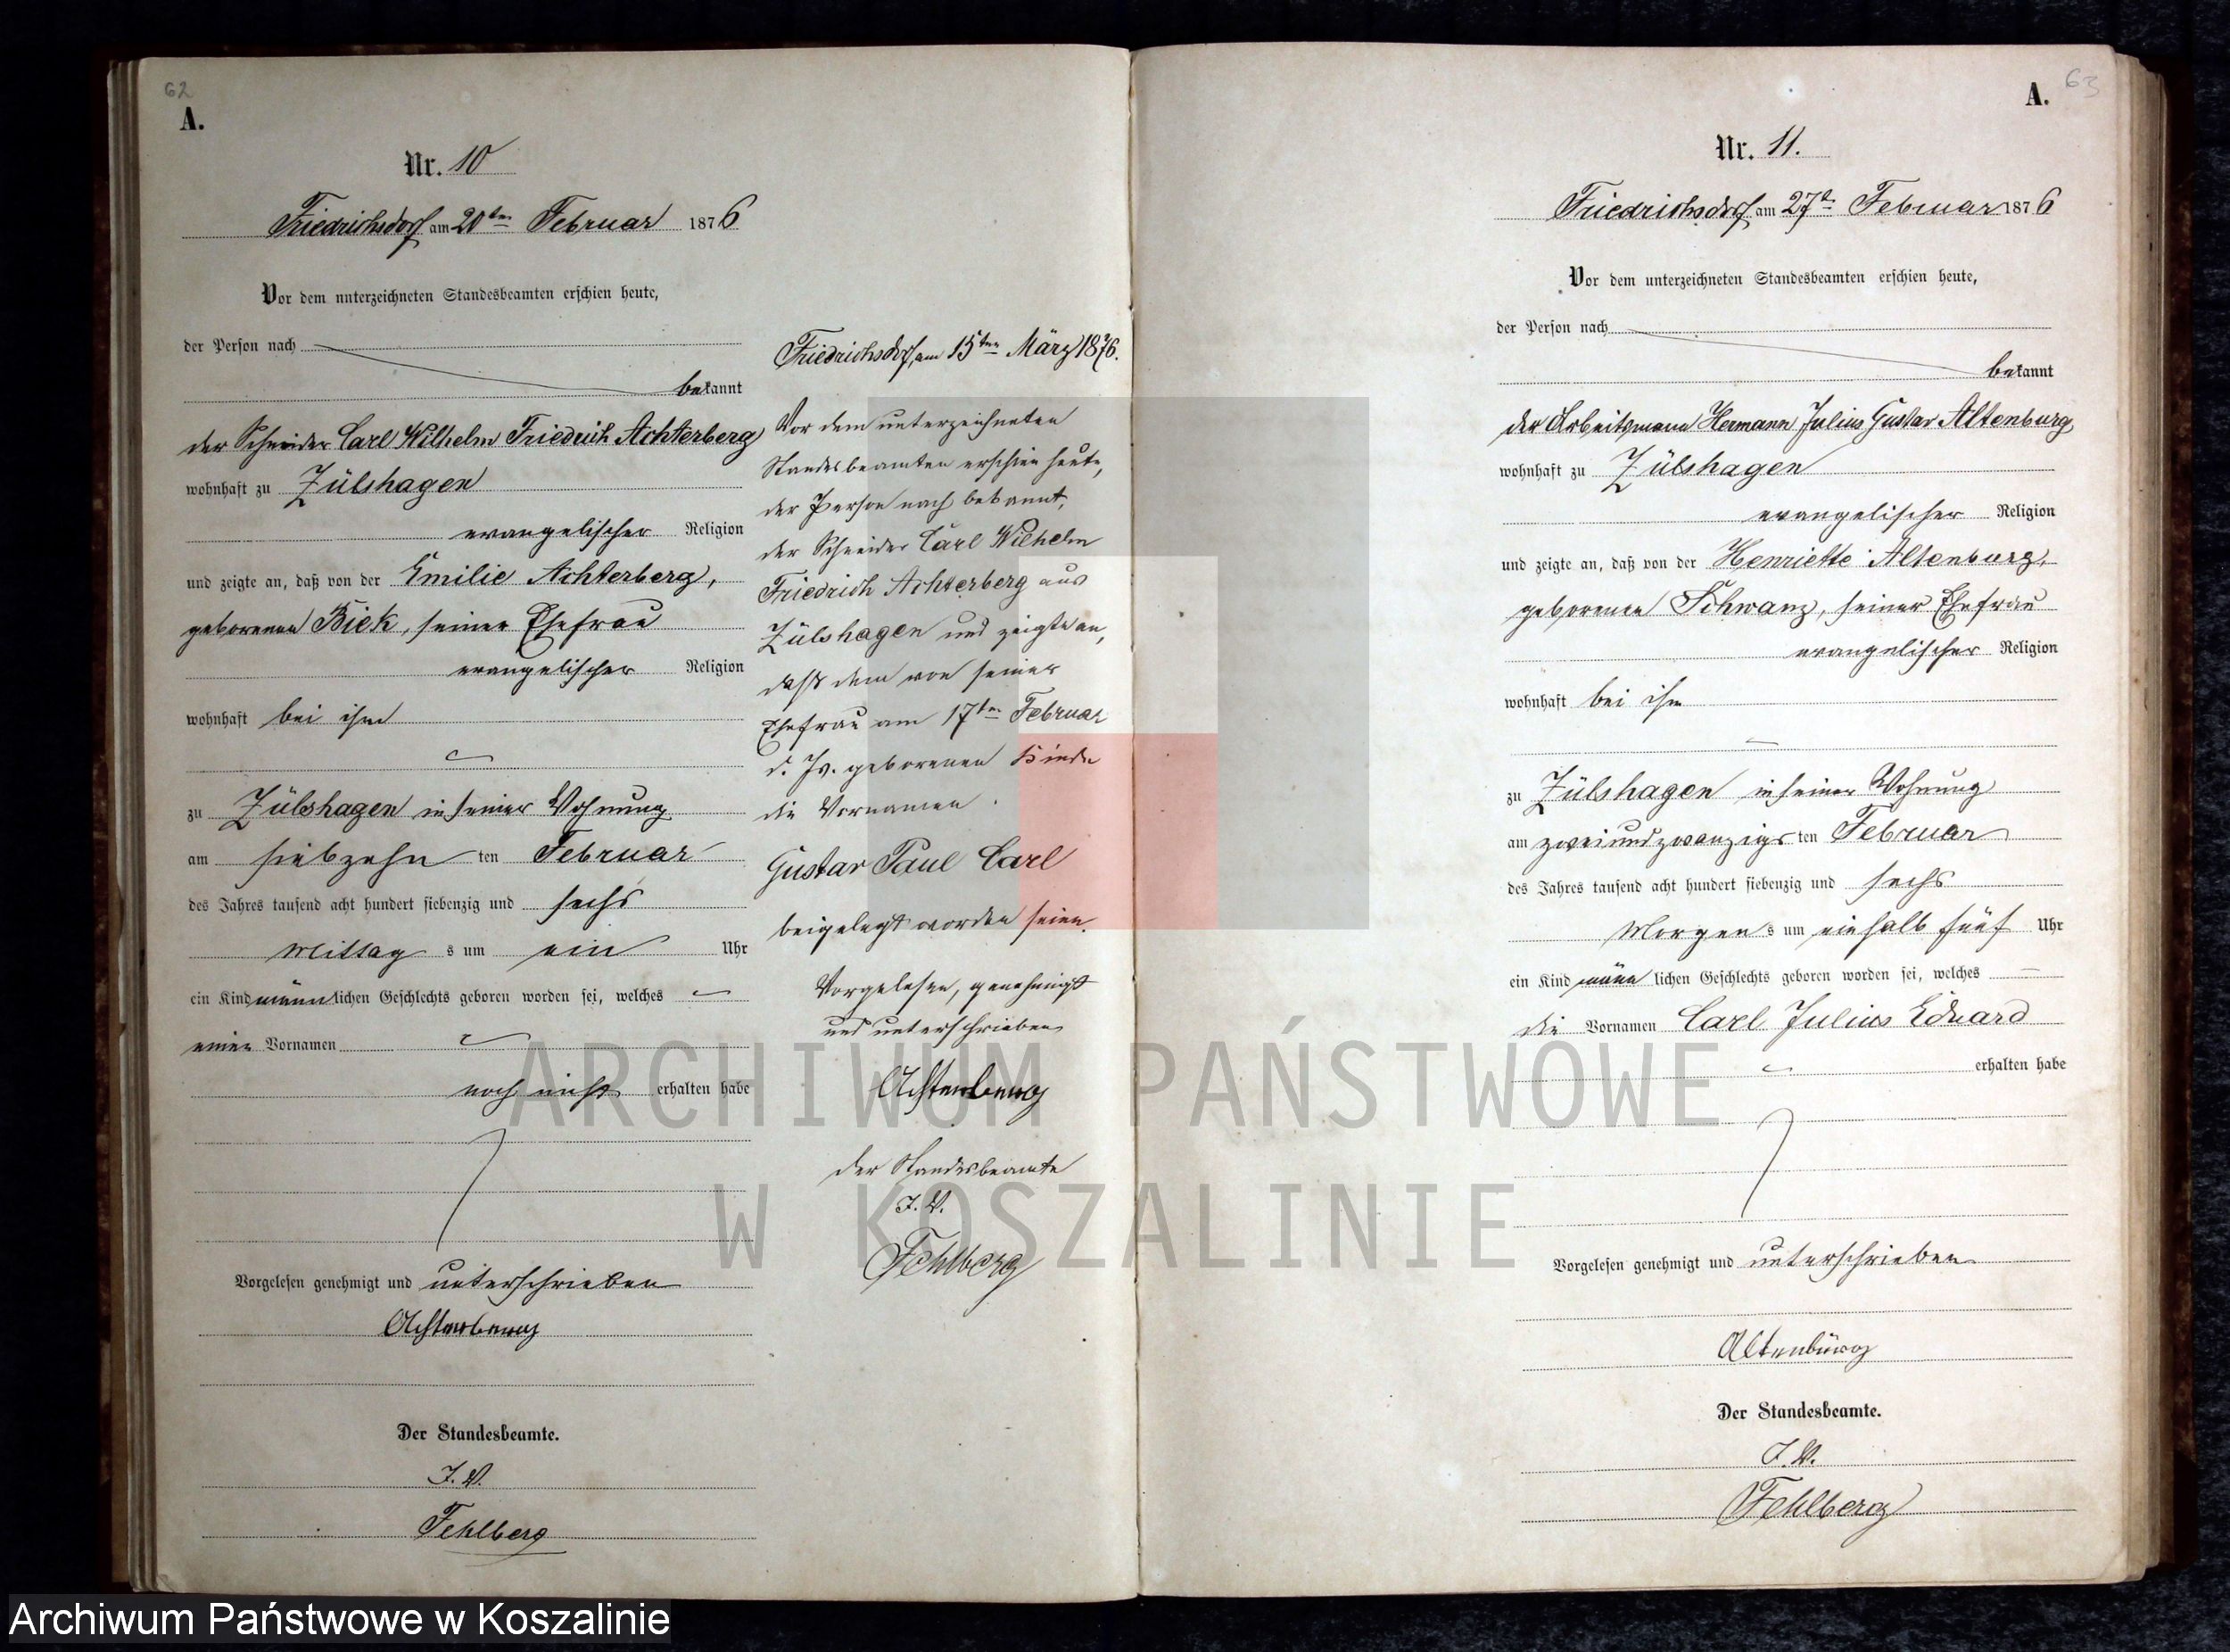 62
A.
Nr. 10
Friedrichsdorf am 20ten Februar 1876
Vor dem unterzeichneten Standesbeamten erschien heute,
der Person nach
bekannt
der Schneider Carl Wilhelm Friedrich Achterberg
wohnhaft zu Zülshagen
evangelischer Religion
und zeigte an, daß von der Emilie Achterberg,
geborenen Biek, seiner Ehefrau
evangelischer Religion
wohnhaft bei ihm
zu Zülshagen in seiner Wohnung
am siebzehn ten Februar
des Jahres tausend acht hundert siebenzig und sechs
Mittag s um ein Uhr
ein Kind männlichen Geschlechts geboren worden sei, welches
einen Vornamen
noch nicht erhalten habe
Vorgelesen genehmigt und unterschrieben
Achterberg
Der Standesbeamte.
I. V.
Fehlberg
Friedrichsdorf, am 15ten März 1876.
Vor dem unterzeichneten
Standesbeamten erschien heute,
der Person nach bekannt,
der Schneider Carl Wilhelm
Friedrich Achterberg aus
Zülshagen und zeigte an,
daß dem von seiner
Ehefrau am 17ten Februar
d. Js. geborenen Kinde
die Vornamen
Gustav Paul Carl
beigelegt worden seien.
Vorgelesen, genehmigt
und unterschrieben
Achterberg
Der Standesbeamte
I. V.
Fehlberg
63
A.
Nr. 11.
Friedrichsdorf am 27t Februar 1876
Vor dem unterzeichneten Standesbeamten erschien heute,
der Person nach
bekannt
der Arbeitsmann Hermann Julius Gustav Altenburg
wohnhaft zu Zülshagen
evangelischer Religion
und zeigte an, daß von der Henriette Altenburg,
geborenen Schwanz, seiner Ehefrau
evangelischer Religion
wohnhaft bei ihm
zu Zülshagen in seiner Wohnung
am zweiundzwanzigsten Februar
des Jahres tausend acht hundert siebenzig und sechs
Morgen s um einhalb fünf Uhr
ein Kind männlichen Geschlechts geboren worden sei, welches
die Vornamen Carl Julius Eduard
erhalten habe
Vorgelesen genehmigt und unterschrieben
Altenburg
Der Standesbeamte.
I. V.
Fehlberg
ARCHIWUM PAŃSTWOWE
W KOSZALINIE
Archiwum Państwowe w Koszalinie